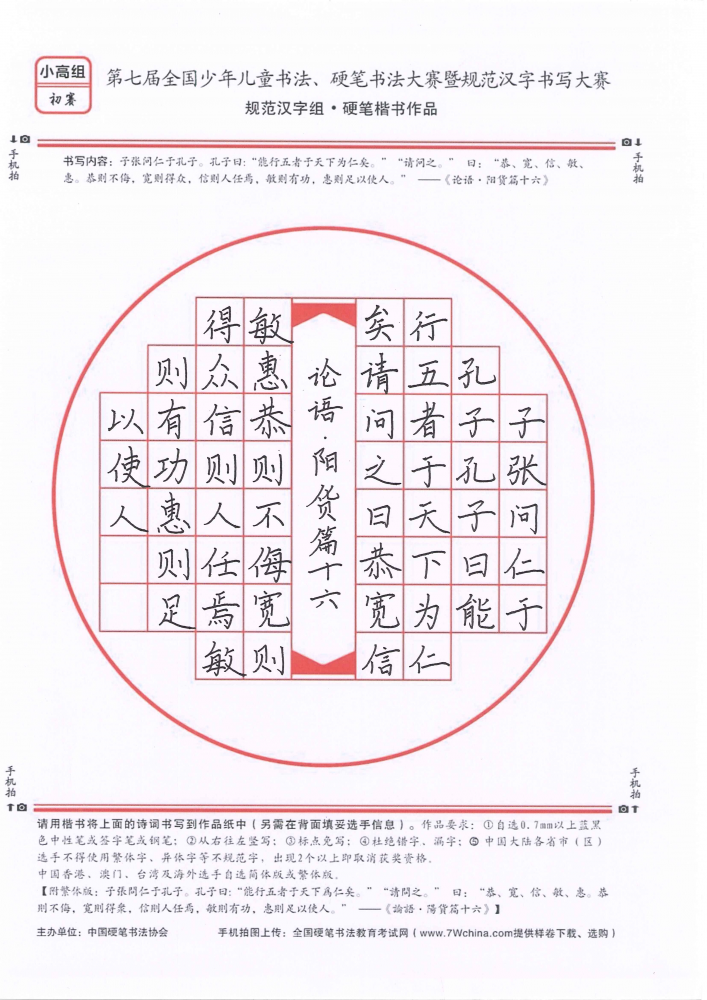 小高组
初赛
第七届全国少年儿童书法、硬笔书法大赛暨规范汉字书写大赛
规范汉字组·硬笔楷书作品
手机拍
手机拍
书写内容：子张问仁于孔子。孔子曰：“能行五者于天下为仁矣。”“请问之。”曰：“恭、宽、信、敏、
惠。恭则不侮，宽则得众，信则人任焉，敏则有功，惠则足以使人。”——《论语·阳货篇十六》
子张问仁于
孔子孔子曰能
行五者于天下为仁
矣请问之曰恭宽信
论语·阳货篇十六
敏惠恭则不侮宽则
得众信则人任焉敏
则有功惠则足
以使人
手机拍
手机拍
请用楷书将上面的诗词书写到作品纸中（另需在背面填妥选手信息）。作品要求：①自选0.7mm以上蓝黑
色中性笔或签字笔或钢笔；②从右往左竖写；③标点免写；④杜绝错字、漏字；⑤中国大陆各省市（区）
选手不得使用繁体字、异体字等不规范字，出现2个以上即取消获奖资格。
中国香港、澳门、台湾及海外选手自选简体版或繁体版。
【附繁体版：子張問仁于孔子。孔子曰：“能行五者于天下爲仁矣。”“請問之。”曰：“恭、寬、信、敏、惠。恭
則不侮，寬則得衆，信則人任焉，敏則有功，惠則足以使人。”——《論語·陽貨篇十六》】
主办单位：中国硬笔书法协会
手机拍图上传：全国硬笔书法教育考试网（www.7Wchina.com提供样卷下载、选购）